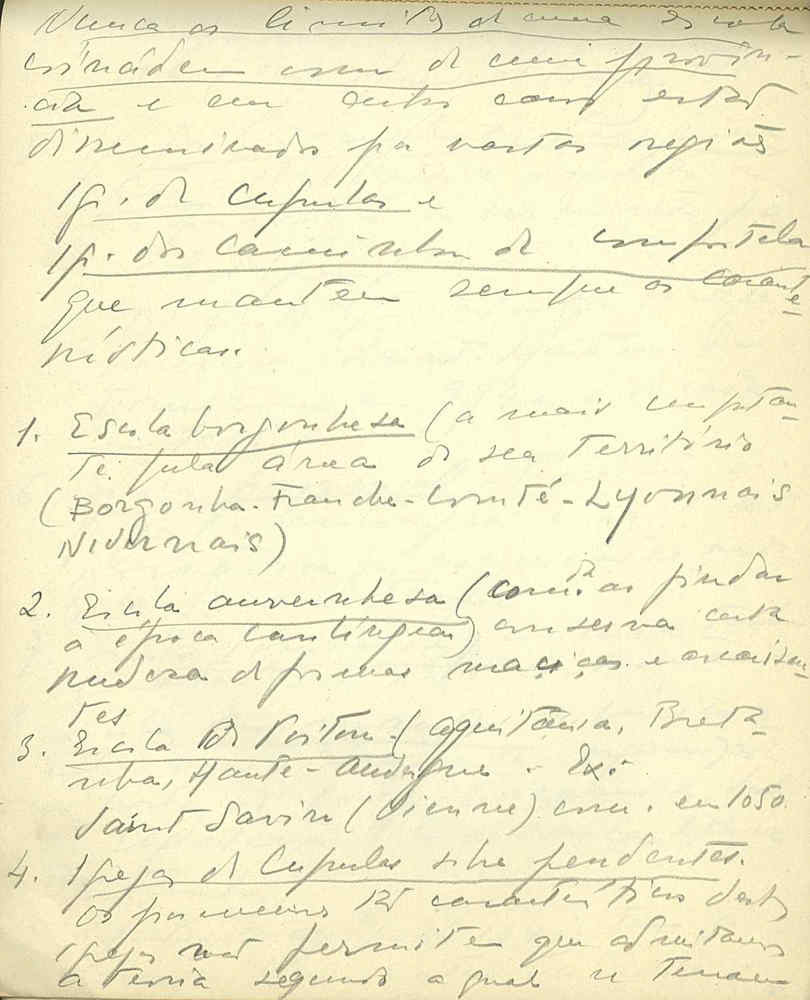 Nunca os limites de uma Escola
coincidem com os de uma provín-
cia e em outros casos estão
disseminados por vastas regiões
Ig. de cupulas e
Ig. dos Caminhos de Compostela
que mantem sempre as caracte-
rísticas.
1. Escola borgonhesa (a mais importan-
te pela área do seu território
(Borgonha - Franche-Comté - Lyonnais
Nivernais)
2. Escola auvernhesa (comda ao findar
a época carolíngia) conserva certa
rudeza de formas maciças e arcaizan-
tes
3. Escola de Poitou - (Aquitânia, Breta-
nha, Haute-Auvergne. Ex:
Saint Savin (Vienne) com. em 1050
4. Igrejas de Cupulas sobre pendentes.
Os pormenores tão característicos destas
igrejas não permitem que admitamos
a teoria segundo a qual se